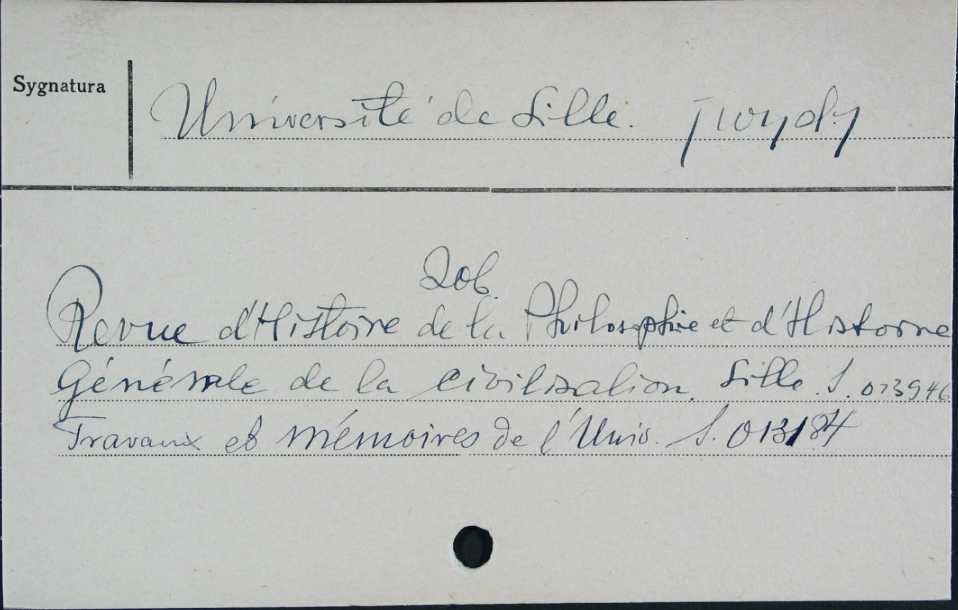 Sygnatura
Université de Lille.
Zob.
Revue d'Histoire de la Philosophie et d'Histoire
Générale de la civilisation. Lille. S. 013946
Travaux et mémoires de l'Univ. S. 013184